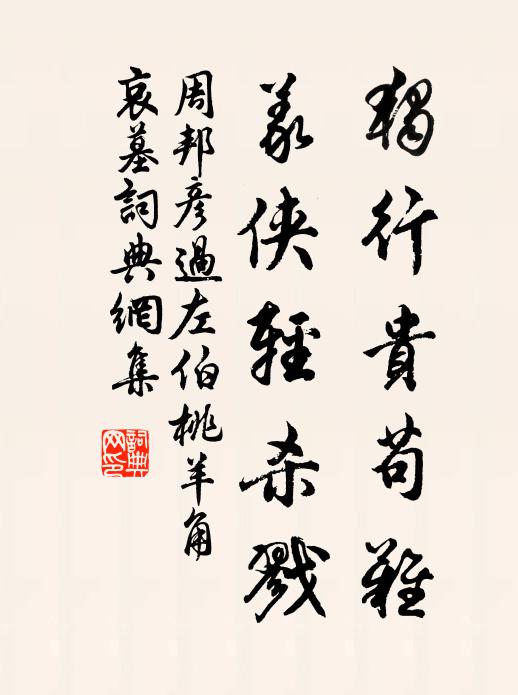 獨行貴苟難
義俠輕杀戮
周邦彦過左伯桃羊角
哀墓詞典網集
詞典
网印